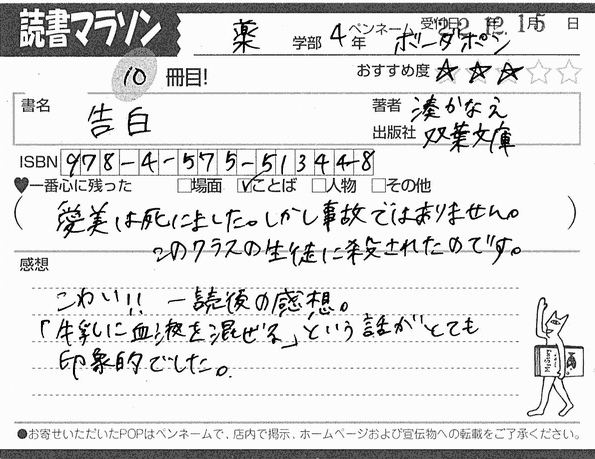 読書マラソン
薬 学部 4年 ペンネーム ボーダポン
受付日 12年12月15日
10 冊目!
おすすめ度 ★★★☆☆
書名 告白
著者 湊かなえ
出版社 双葉文庫
ISBN 978-4-575-51344-8
♥一番心に残った □場面 ☑ことば □人物 □その他
(愛美は死にました。しかし事故ではありません。
このクラスの生徒に殺されたのです。)
感想
こわい!! 一読後の感想。
「牛乳に血液を混ぜる」という話がとても
印象的でした。
●お寄せいただいたPOPはペンネームで、店内で掲示、ホームページおよび宣伝物への転載をご了承ください。